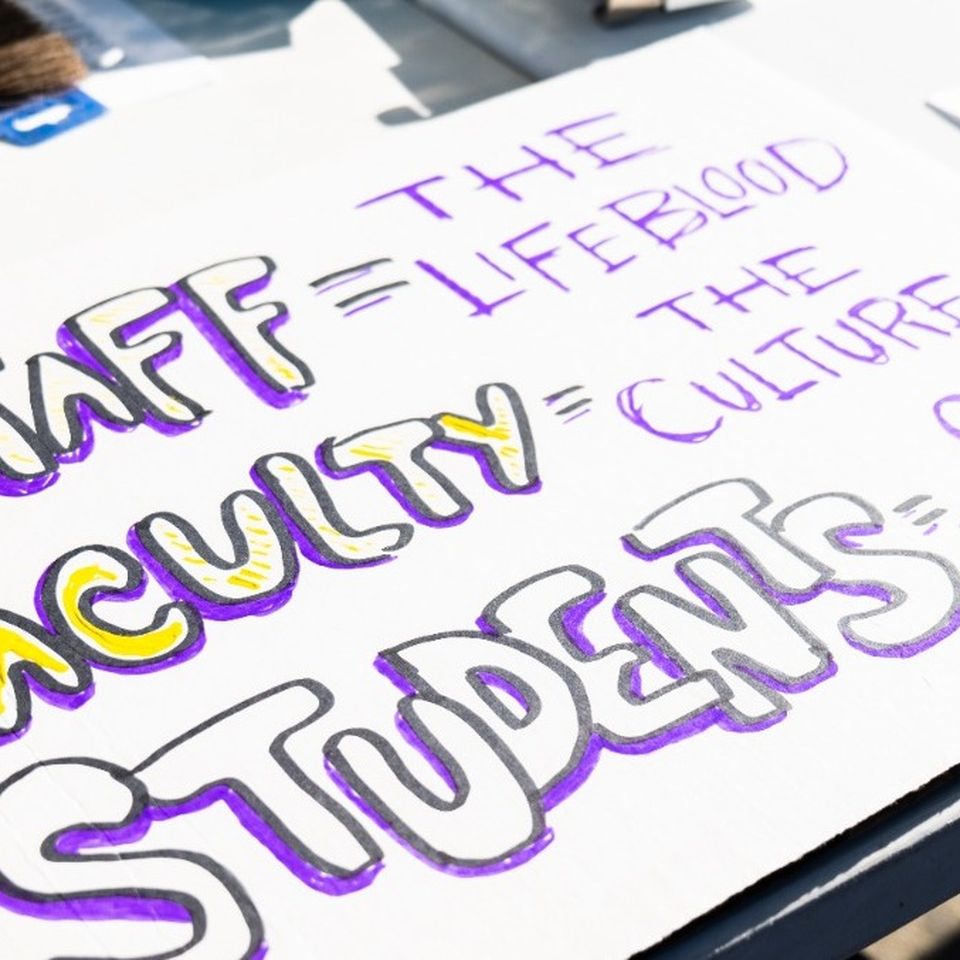 TAFF = THE
LIFEBLOOD
ACULTY = THE
CULTURE
STUDENTS =